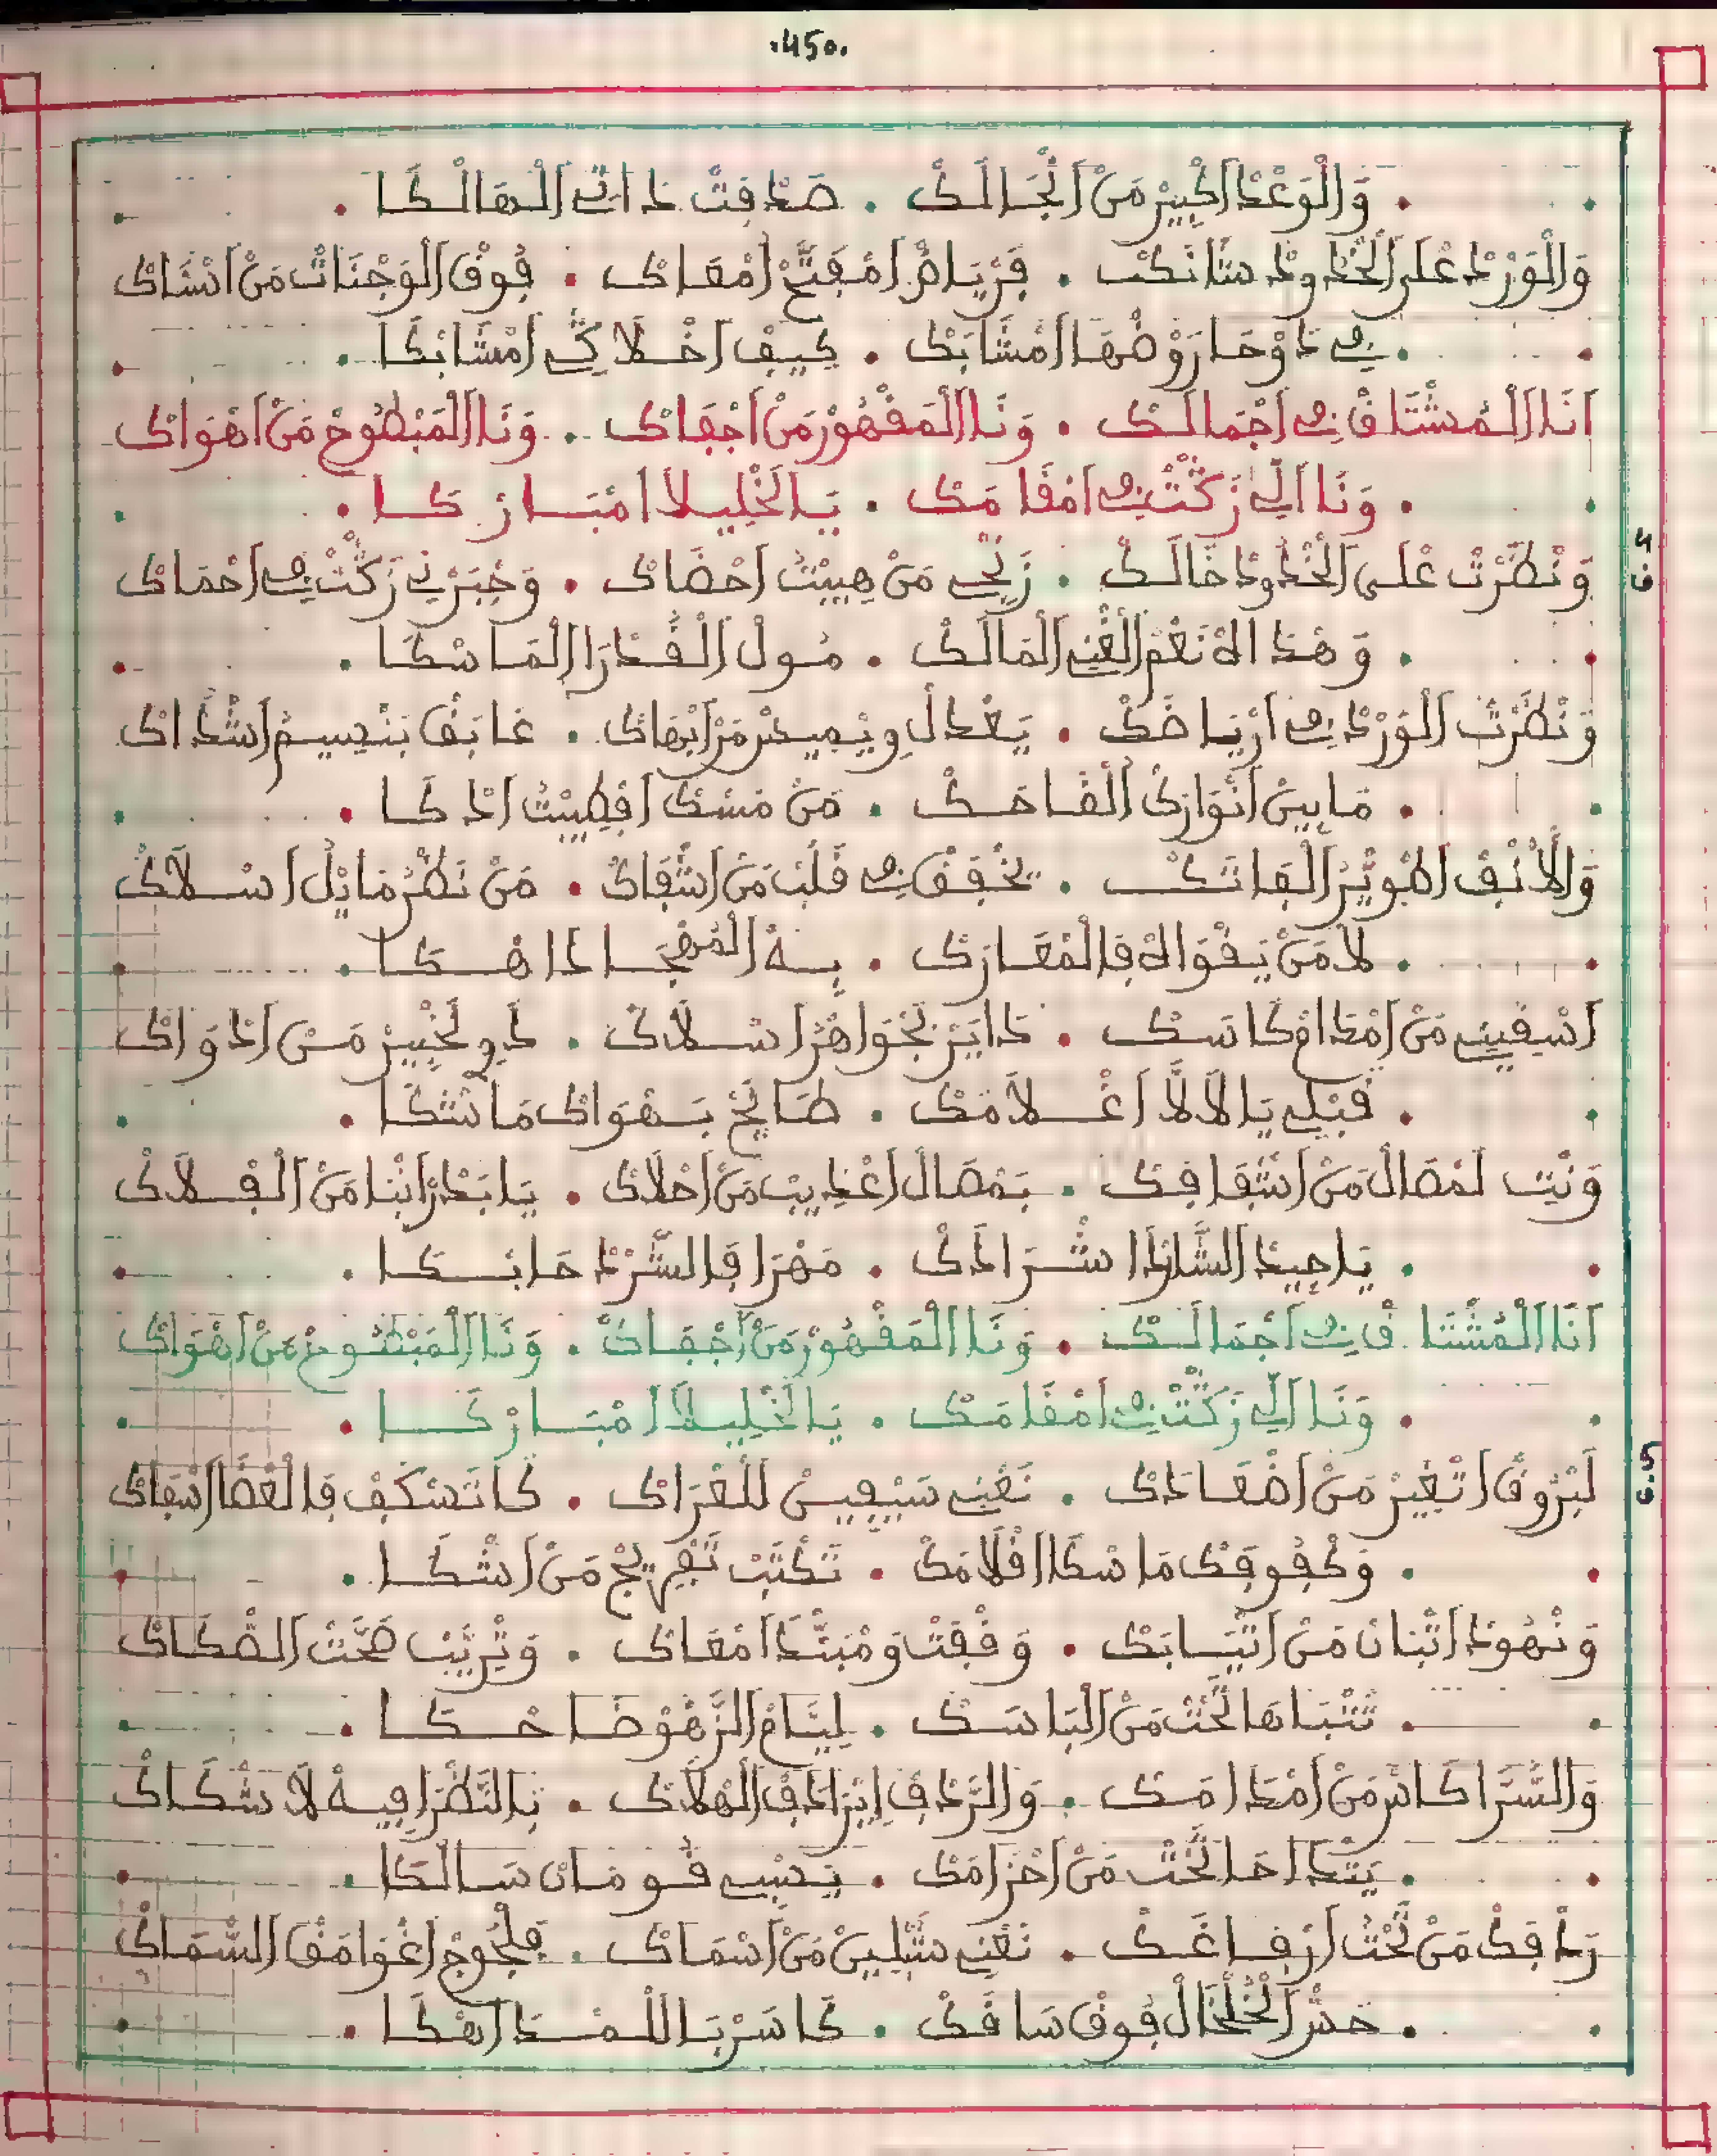 .450.
. وَالْوَعْدْ اكْبِيرْ مَنْ اَنْجَالَكْ . صَدْفَتْ ذَاتِي الْهَالْكَا .
وَالْوَرْدْ عْلَى الْخْدُودْ شَانَكْ . فَرْيَاضْ اَمْفَتَّحْ اَمْعَاكْ . فُوقْ الْوَجْنَاتْ مَنْ اَنْشَاكْ
. فِي دَوْحَا رَوْضْهَا اَمْشَابَكْ . كِيفْ اَخْلَاكِي اَمْشَابْكَا .
اَنَا الْمُشْتَاقْ فِي اَجْمَالَكْ . وَنَا الْمَقْهُورْ مَنْ اَجْفَاكْ . وَنَا الْمَبْطُوحْ مَنْ اَهْوَاكْ
. وَنَا اللِّي رَكْتْ فِي اَمْقَامَكْ . يَا الْخْلِيلَا اَمْبَارْكَا .
4
ف
وَنْظَرْتْ عْلَى الْخْدُودْ خَالَكْ . زَنْجِي مَنْ هِيبْتُ اَحْضَاكْ . وَخْبَرْنِي رَكْتْ فِي اَحْمَاكْ
. وَهْدَاهْ نَعْمْ الْغْنِي الْمَالَكْ . مُولْ الْقُدْرَا الْمَاسْكَا .
وَنْظَرْتْ الْوَرْدْ فِي اَرْيَاضَكْ . يَعْدَلْ وِيْمِيسْ مَنْ اَبْهَاكْ . عَابَقْ بَنْسِيمْ اَشْدَاكْ
. مَابِينْ اَنْوَارَكْ الْقَاحَكْ . مَنْ مَسْكْ اَفْطِيبْتُ اَدْكَا .
وَالْاَنْفْ اَطْوِيَّرْ الْفَاتَكْ . يَخْفَقْ فِي قَلْبْ مَنْ اَشْفَاكْ . مَنْ نَظْرْ مَايَلْ اَسْلَاكْ
. لَا مَنْ يَقْوَاهْ فَالْمْعَارَكْ . بِهْ الْمُهْجَا اَدَاهْكَا .
اَسْقِينِي مَنْ اَمْدَامْ كَاسَكْ . دَايَرْ بَجْوَاهَرْ اَسْلَاكْ . لَدُو لَخْبِيرْ مَنْ اَدْوَاكْ
. قَبْلِي يَا لَالَّا اَغْلَامَكْ . طَايَحْ بَهْوَاكْ مَا شْكَا .
وَنْتِ لَمْصَالْ مَنْ اَشْفَافَكْ . بَمْصَالْ اَعْدِيبْ مَنْ اَحْلَاكْ . يَا بَدْرْ اَبْنَا مَنْ الْفْلَاكْ
. يَا جِيدْ الشَّارْدَا اَشْرَادَكْ . مَهْرَا فَالسَّرْدْ حَابْكَا .
اَنَا الْمُشْتَاقْ فِي اَجْمَالَكْ . وَنَا الْمَقْهُورْ مَنْ اَجْفَاكْ . وَنَا الْمَبْطُوحْ مَنْ اَهْوَاكْ
. وَنَا اللِّي رَكْتْ فِي اَمْقَامَكْ . يَا الْخْلِيلَا اَمْبَارْكَا .
5
ف
لَبْرُوقْ اَتْغِيرْ مَنْ اَضْعَادَكْ . نَعْنِي سَيْفِينْ لَلْعْرَاكْ . كَاتَسْكَفْ فَالْعْضَا اَسْفَاكْ
. وَكْفُوفَكْ مَاسْكَا اَقْلَامَكْ . تَكْتَبْ تَفْرِيجْ مَنْ اَشْكَا .
وَنْهُودْ اَثْنَانْ مَنْ اَثْيَابَكْ . وَقْفَتْ وَمْبَنَّدَا اَمْعَاكْ . وَتْرِيَّبْ صَحَّتْ الصْكَاكْ
. تَتْبَاهَا تَحْتْ مَنْ الْبَاسَكْ . لِيَّامْ الزَّهْوْ ضَاحْكَا .
وَالسُّرَّا كَاسْ مَنْ اَمْدَامَكْ . وَالرَّدْفْ اِيْرَادَفْ الْهْلَاكْ . بَالنَّظْرَا فِيهْ لَا شْكَاكْ
. يَتْدَاحَا تَحْتْ مَنْ اَحْزَامَكْ . يَسْبِي قُومَانْ سَالْكَا .
رَدْفَكْ مَنْ تَحْتْ اَرْفَاغَكْ . نَعْنِي شَبْلِينْ مَنْ اَسْمَاكْ . فَلْجُوجْ اَغْوَامَقْ السْمَاكْ
. حَسّْ الْخُلْخَالْ فُوقْ سَاقَكْ . كَاسَرْ بَاللَّمْدَا اَهْكَا .